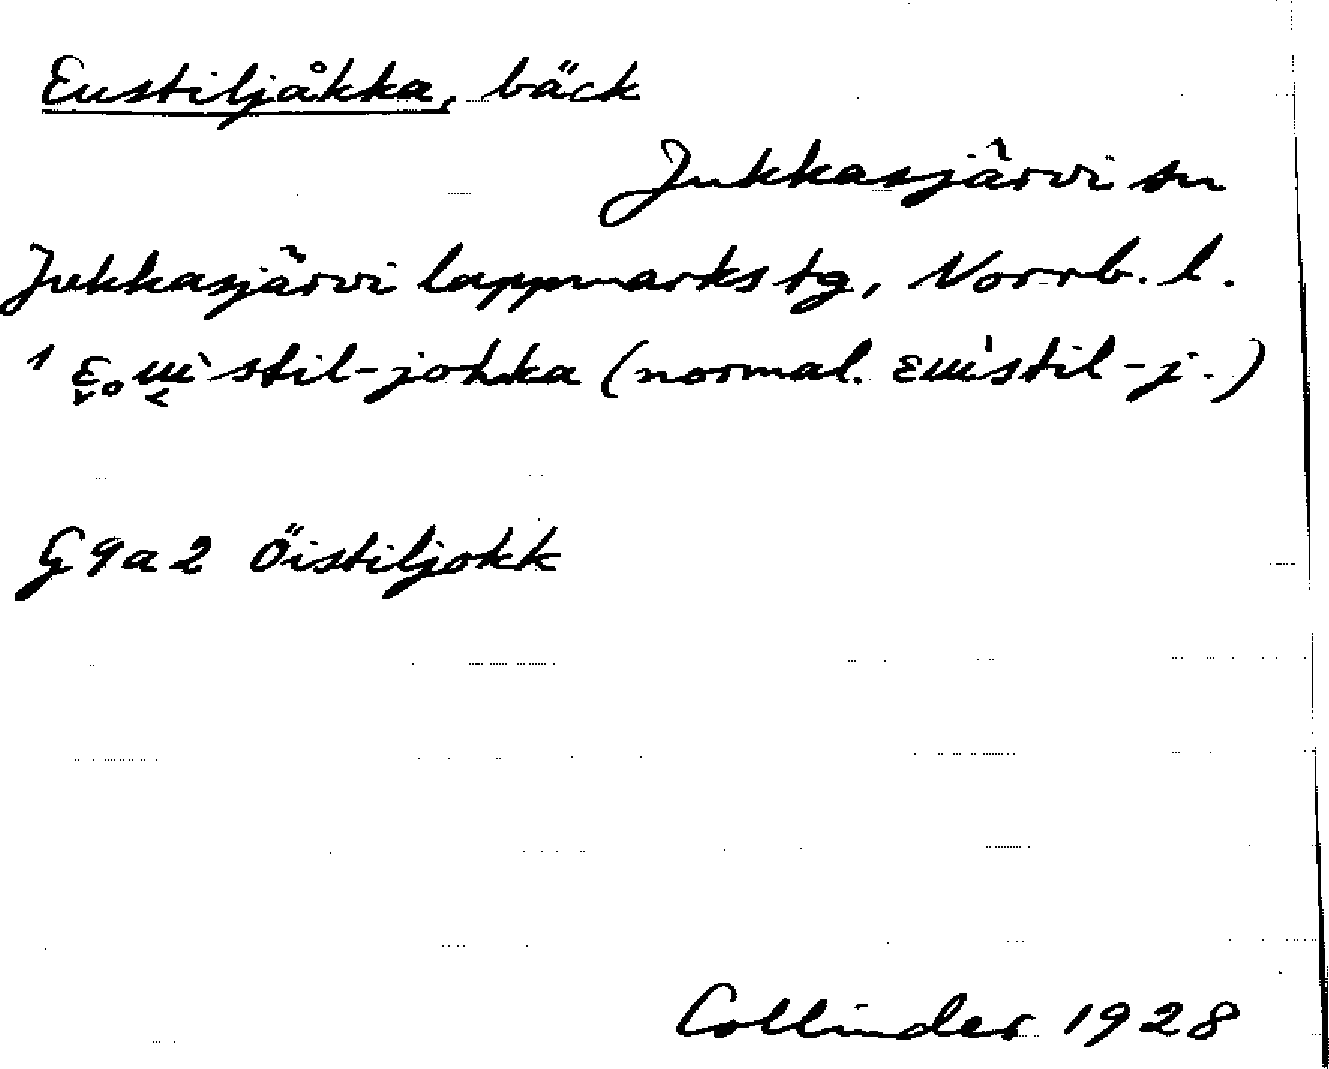 Eustiljåkka, bäck
Jukkasjärvi sn
Jukkasjärvi lappmarks tg, Norrb. l.
stil-johka (normal. ɛɯ'stil-j.)
G9a2 Öistiljokk
Collinder 1928